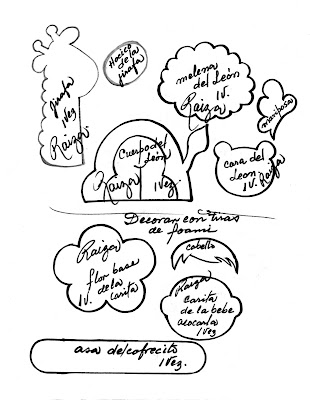 jirafa
1 Vez
Raiza
Hocico
de la
jirafa
melena
del León
Raiza 1V.
mariposa
Cuerpo del
León
Raiza 1 Vez.
cara del
Leon
1V. Raiza
Decorar con tiras
de foami
Raiza
flor base
de la
1V. Carita
cabello
Raiza
carita
de la bebe
asa del cofrecito
1 Vez.